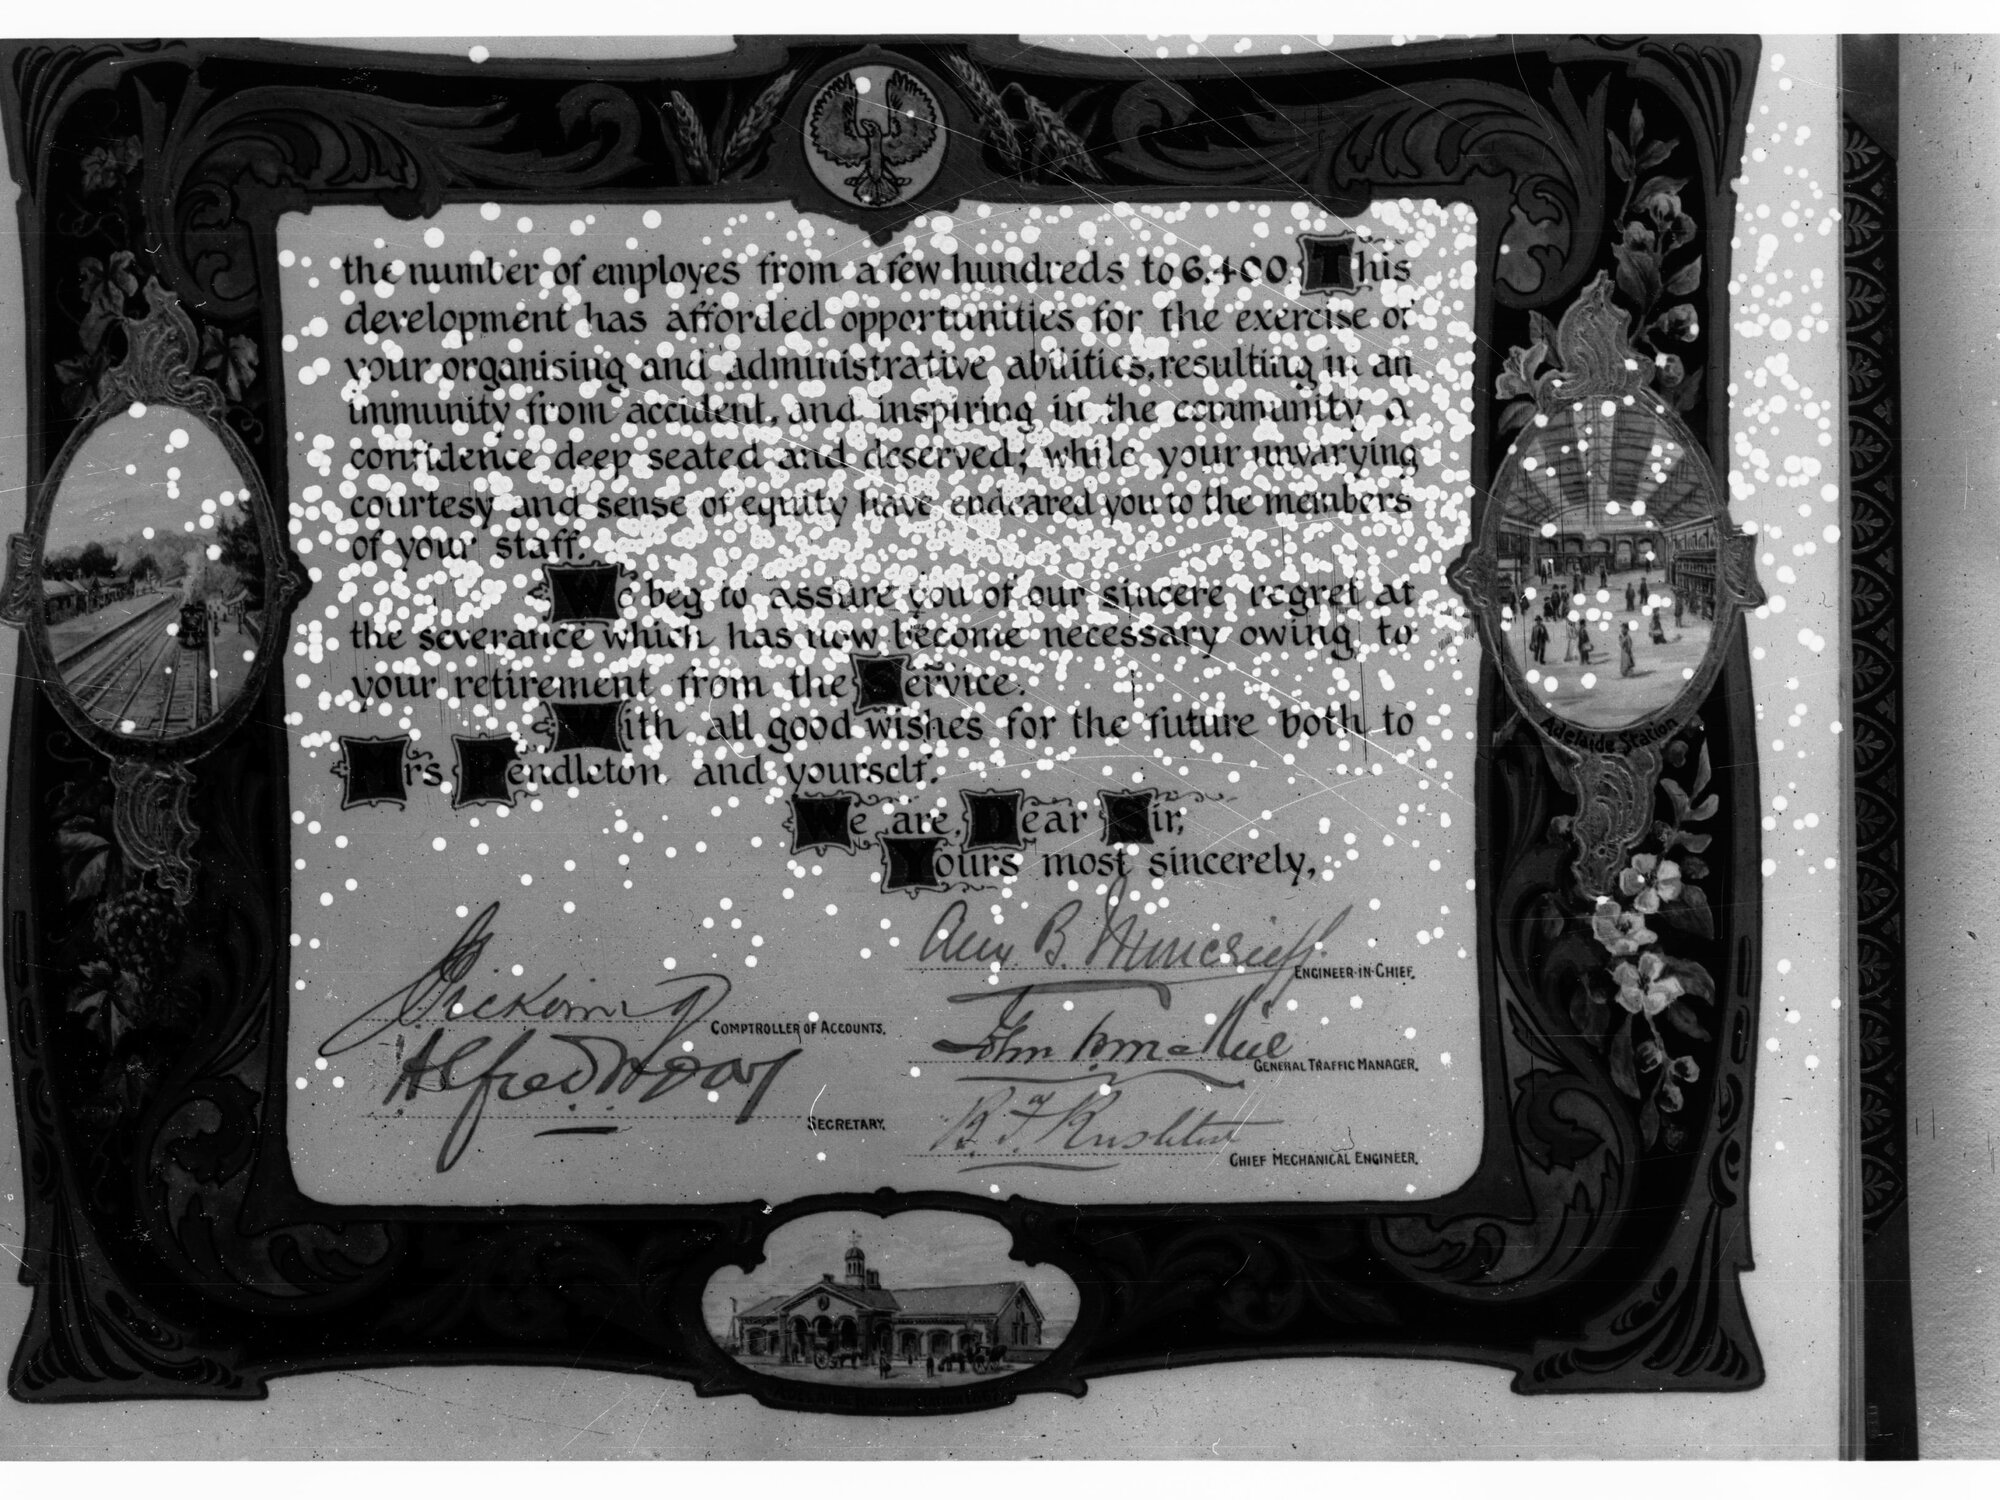 the number of employes from a few hundreds to 6,400. This
development has afforded opportunities for the exercise of
your organising and administrative abilities, resulting in an
immunity from accident, and inspiring in the community a
confidence deep seated and deserved; while your unvarying
courtesy and sense of equity have endeared you to the members
of your staff.
We beg to assure you of our sincere regret at
the severance which has now become necessary owing to
your retirement from the Service.
With all good wishes for the future both to
Mrs Pendleton and yourself.
We are, Dear Sir,
Yours most sincerely,
Alex B. Moncrieff
ENGINEER-IN-CHIEF.
COMPTROLLER OF ACCOUNTS.
John
GENERAL TRAFFIC MANAGER.
Alfred
SECRETARY.
Rushton
CHIEF MECHANICAL ENGINEER.
Adelaide Station